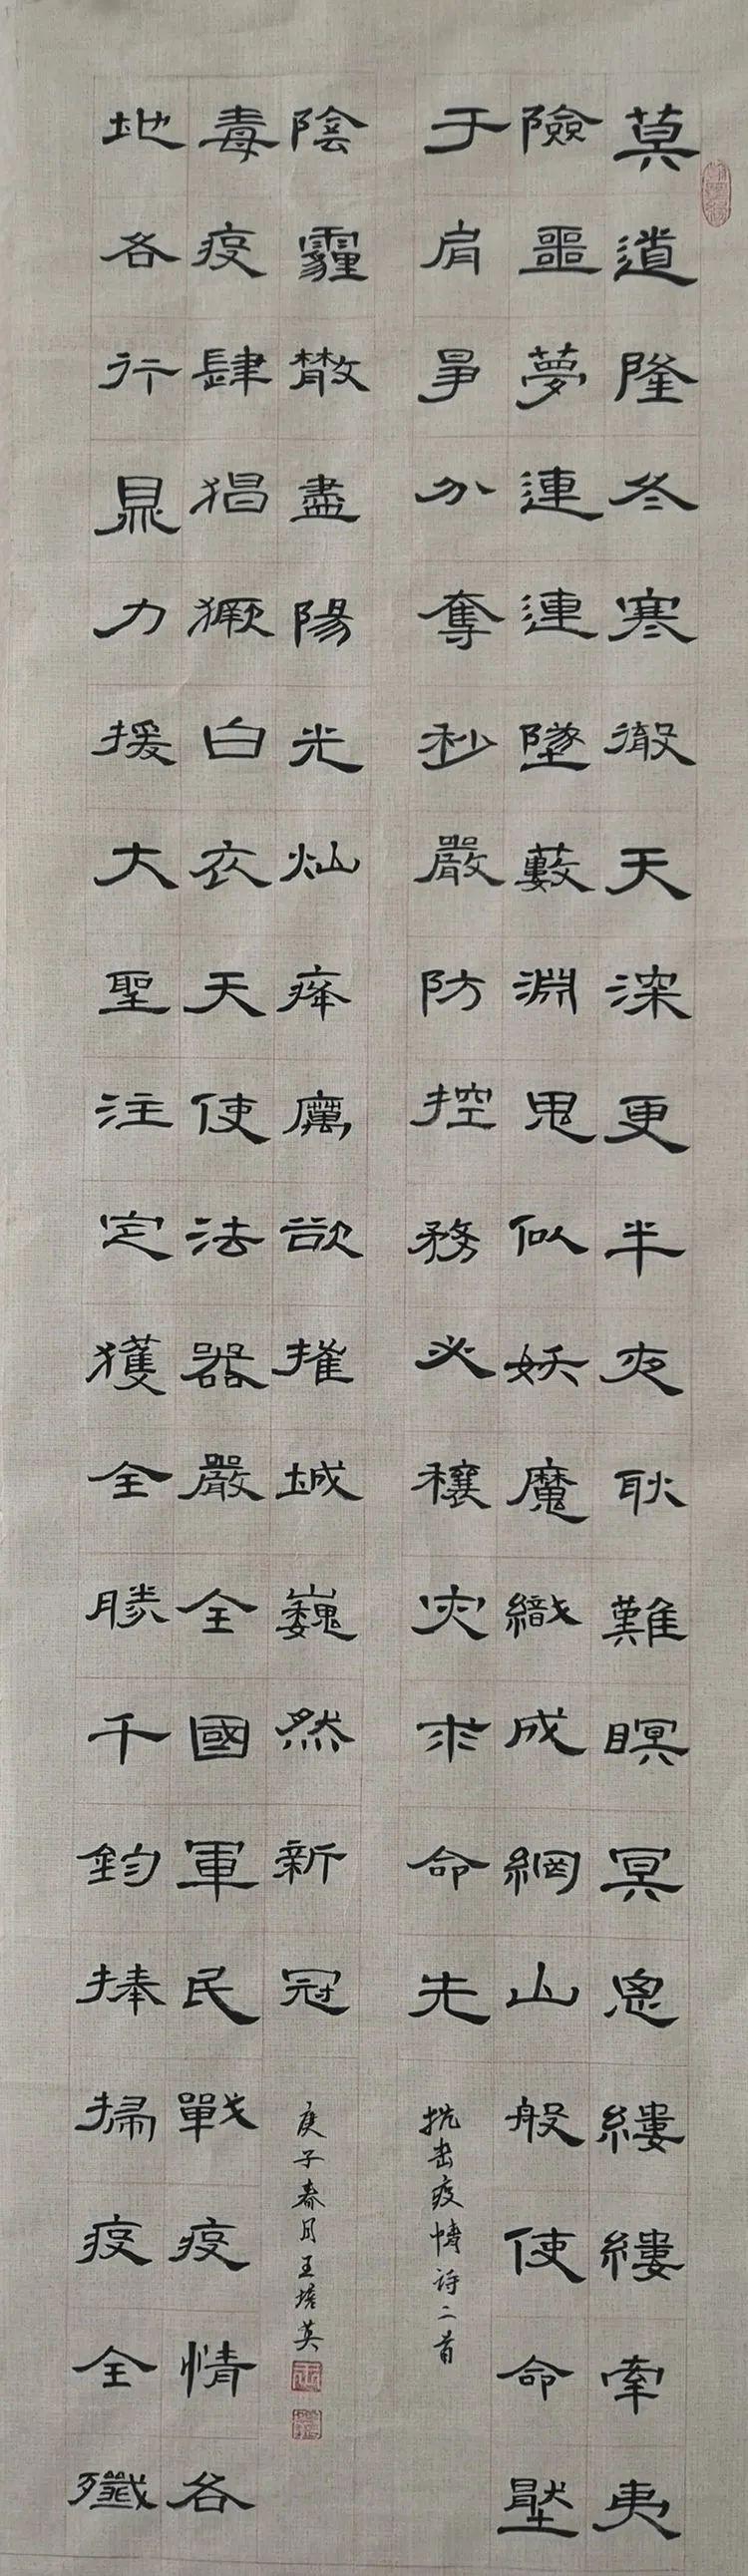 莫道隆冬寒徹天深更半夜耿難瞑冥思縷縷牽夷
險噩夢連連墜藪淵鬼似妖魔織成網山般使命壓
于肩爭分奪秒嚴防控務必穰灾求命先
抗击疫情诗二首
陰霾散盡陽光灿瘴癘欲摧城巍然新冠
庚子春月王培英
毒疫肆猖獗白衣天使法器嚴全國軍民戰疫情各
地各行鼎力援大聖注定獲全勝千鈞捧掃疫全殲